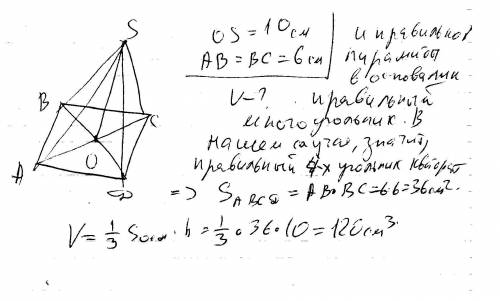 S
B
C
A
O
D
OS = 10 см
AB = BC = 6 см
V - ?
У правильной
пирамиды
в основании
правильный
многоугольник. В
нашем случае, значит,
правильный 4х угольник квадрат
=> S ABCD = AB·BC = 6·6 = 36 см².
V = 1/3 Sосн · h = 1/3 · 36 · 10 = 120 см³.